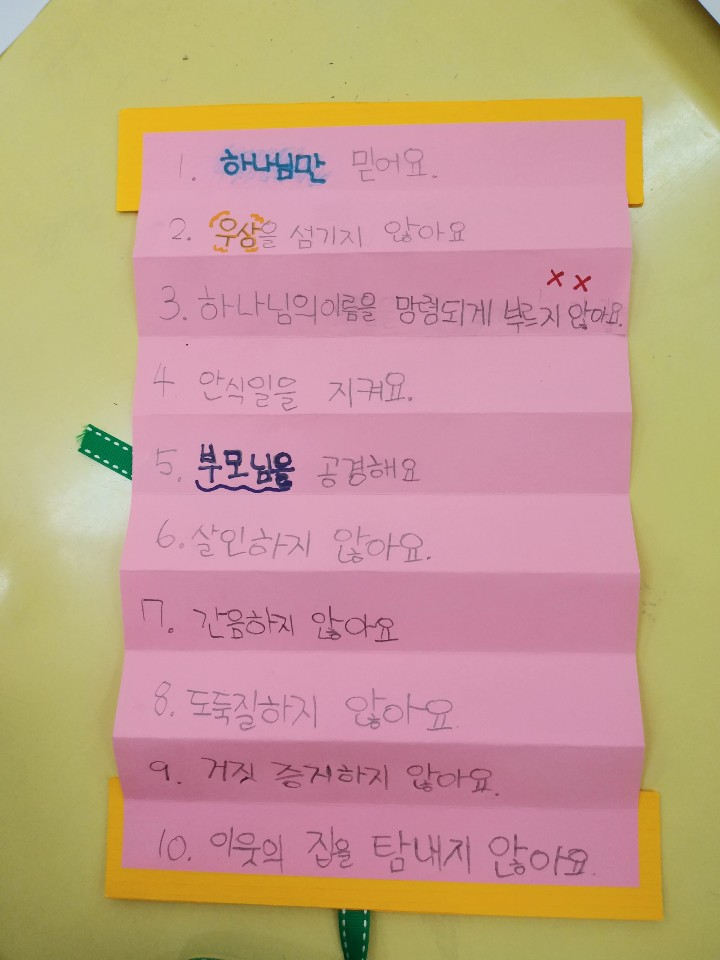 1. 하나님만 믿어요.
2. 우상을 섬기지 않아요
x x
3. 하나님의이름을 망령되게 부르지 않아요.
4 안식일을 지켜요.
5. 부모님을 공경해요
6. 살인하지 않아요.
7. 간음하지 않아요
8. 도둑질하지 않아요
9. 거짓 증거하지 않아요.
10. 이웃의 집을 탐내지 않아요.